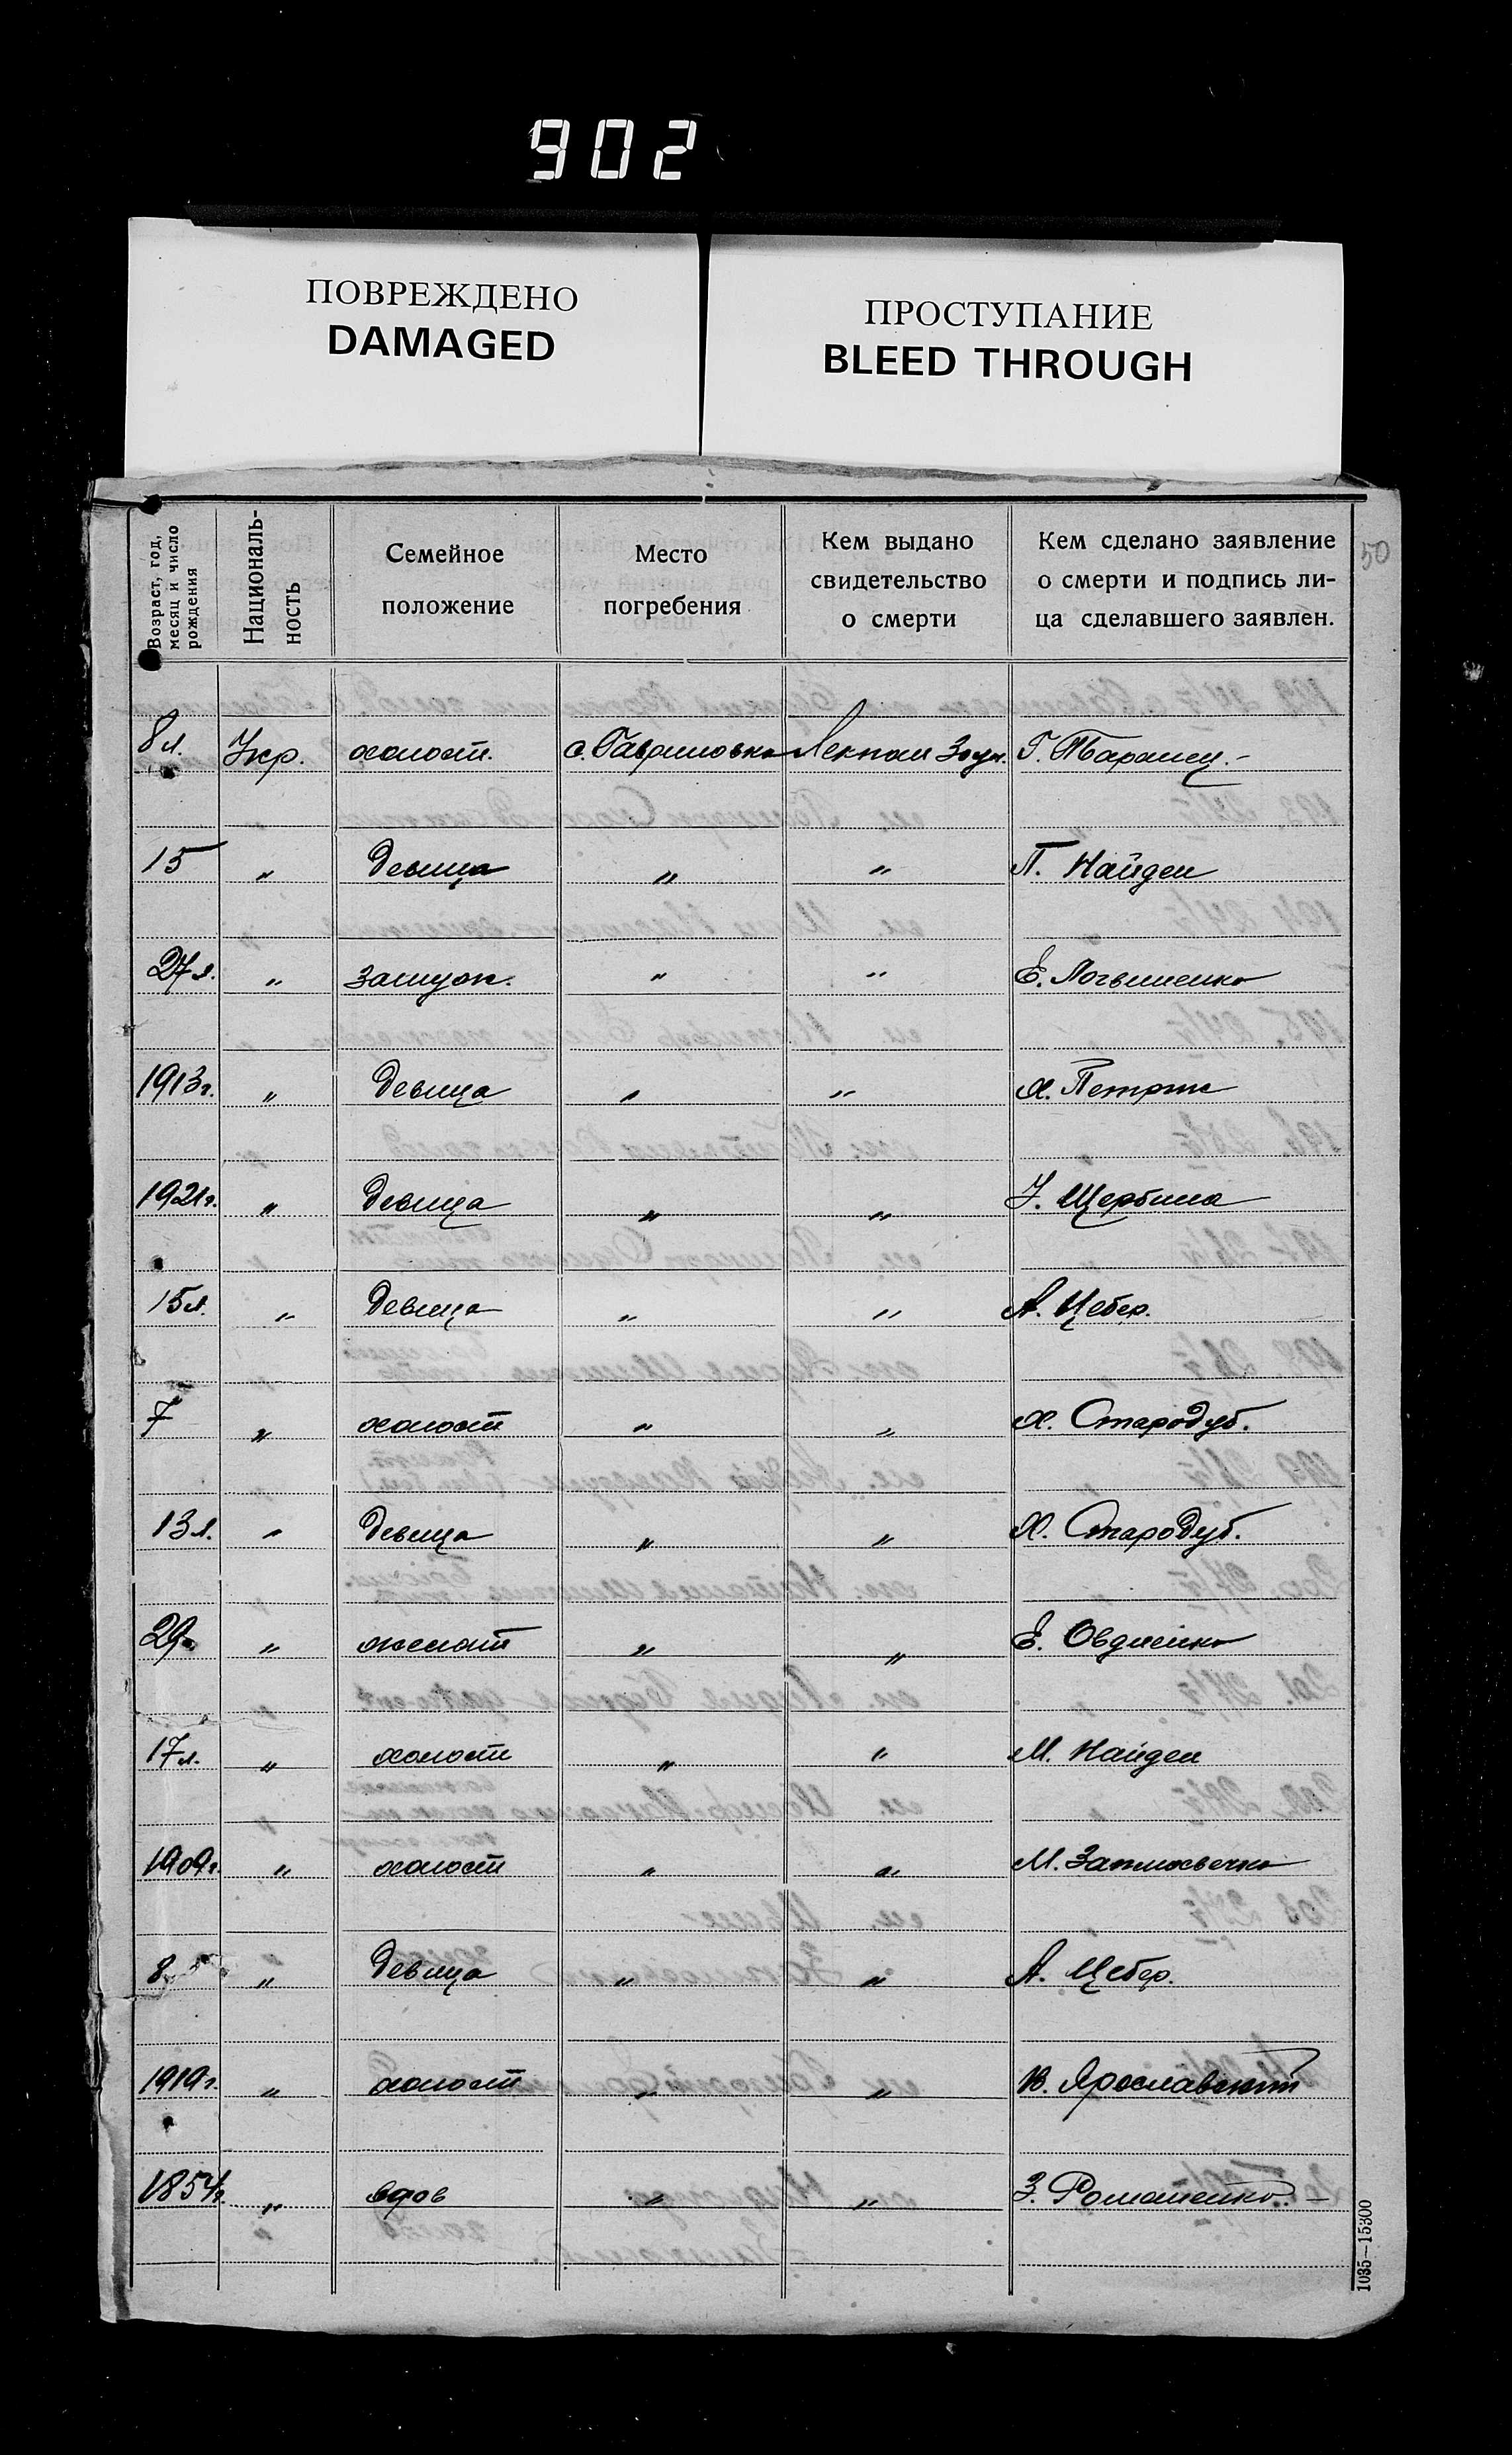 902
ПОВРЕЖДЕНО
DAMAGED
ПРОСТУПАНИЕ
BLEED THROUGH
50
Возраст, год, месяц и число рождения
Националь-ность
Семейное положение
Место погребения
Кем выдано свидетельство о смерти
Кем сделано заявление о смерти и подпись ли-ца сделавшего заявлен.
8 л. Укр. холост. с. Гавриловка Г. Таранец
15 " девица " " П. Найден
27 л. " замуж. " " Е. Логвиненко
1913 г. " девица " " Х. Петрик
1921 г. " девица " " У. Щербина
15 л. " девица " " А. Цебер.
7 " холост " " Х. Стародуб.
13 л. " девица " " Х. Стародуб.
29 " женат " " Е. Овдиенко
17 л. " холост " " М. Найден
1909 г. " холост " " М.
8 " девица " " А. Цебер.
1919 г. " холост " " В. Ярославский
1854 г. " вдов " " З. Романенко
1035—15300